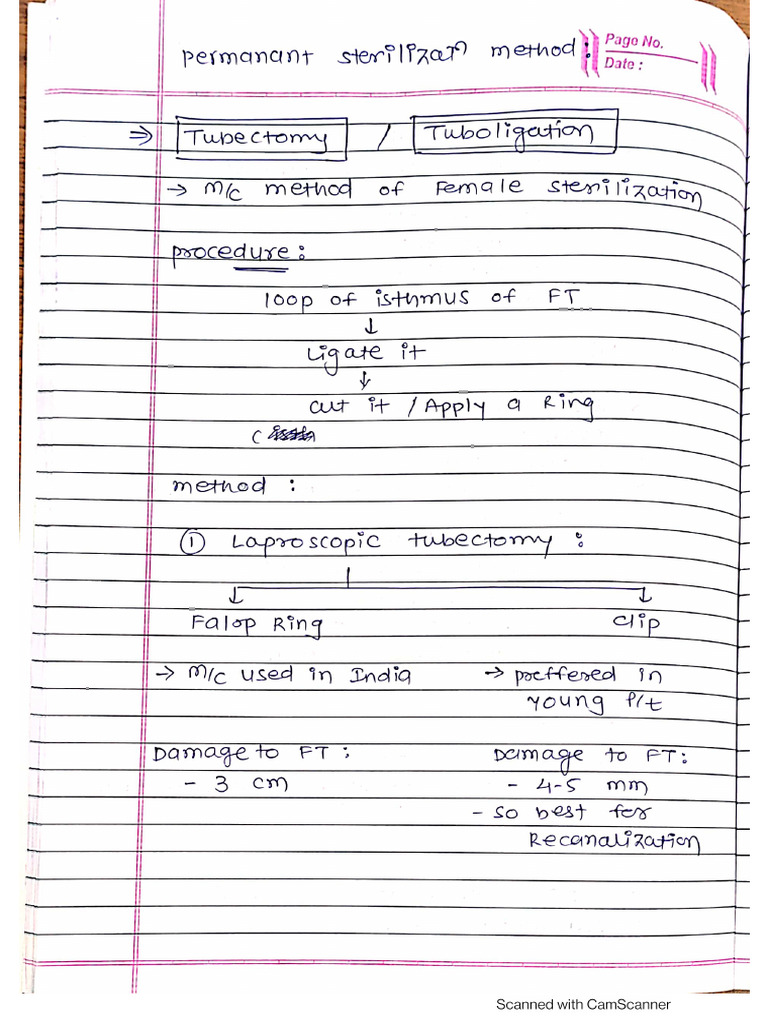 permanant sterilizan method:
Page No.
Date:
⇒ Tubectomy / Tuboligation
→ M/C method of Female sterilization
procedure:
loop of isthmus of FT
↓
Ligate it
↓
cut it / Apply a Ring
(
method :
① Laproscopic tubectomy :
Falop Ring clip
→ M/C used in India → preffered in
young P/t
Damage to FT : Damage to FT:
- 3 cm - 4-5 mm
- so best for
Recanalization
Scanned with CamScanner